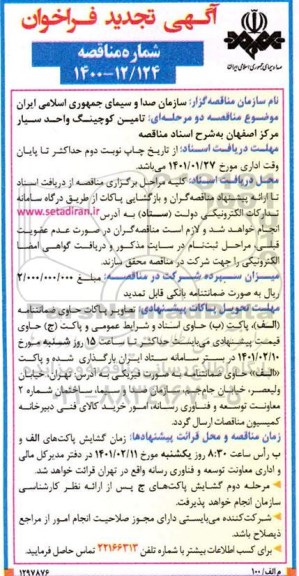 آگهی تجدید فراخوان
صدا و سیمای جمهوری اسلامی ایران
شماره مناقصه
۱۴۰۰-۱۲/۱۲۴
نام سازمان مناقصه‌گزار: سازمان صدا و سیمای جمهوری اسلامی ایران
موضوع مناقصه دو مرحله‌ای: تامیـن کوچینـگ واحـد سیـار
مرکز اصفهان به‌شرح اسناد مناقصه
مهلت دریافت اسـناد: از تاریخ چاپ نوبت دوم حداکثر تا پایان
وقت اداری مورخ ۱۴۰۱/۰۱/۲۷ می‌باشد.
محل دریافت اسناد: کلیه مراحل برگزاری مناقصه از دریافت اسناد
تا ارائه پیشنهاد مناقصه‌گران و بازگشایی پاکات از طریق درگاه سامانه
تدارکات الکترونیکی دولت (ستاد) به آدرس www.setadiran.ir
انجام خواهد شـد و لازم است مناقصه‌گران در صورت عدم عضویت
قبلی، مراحل ثبت‌نام در سایت مذکور و دریافت گواهی امضا
الکترونیکی را جهت شرکت در مناقصه محقق سازند.
میـزان سـپرده شـرکت در مناقصـه: مبلـغ ۲/۰۰۰/۰۰۰/۰۰۰
ریال به صورت ضمانتنامه بانکی قابل تمدید
مهلت تحویل پاکات پیشنهادی: تصاویر پاکات حاوی ضمانتنامه
(الـف)، پاکت (ب) حاوی اسناد و شرایط عمومی و پاکت (ج) حاوی
قیمت پیشنهادی می‌بایسـتی حداکثر تا ساعت ۱۵ روز شنبه مورخ
۱۴۰۱/۰۲/۱۰ در بستر سامانه ستاد ایران بارگذاری شده و پاکت
«الف» حاوی ضمانتنامه به صورت فیزیکی به آدرس تهران، خیابان
ولیعصر، خیابان جام‌جم، سازمان صدا و سیما، ساختمان شماره ۲
معاونت توسعه و فناوری رسانه، امور خرید کالای فنی دبیرخانه
کمیسیون مناقصات ارسال گردد.
زمان مناقصه و محل قرائت پیشنهادها: زمان گشایش پاکت‌های الف و
ب رأس ساعت ۸:۳۰ روز یکشنبه مورخ ۱۴۰۱/۰۲/۱۱ در دفتر مدیرکل مالی
و اداری معاونت توسعه و فناوری رسانه واقع در تهران قرائت خواهد شد.
مرحله دوم گشایش پاکت‌های ج پـس از ارائه نظر کارشناسی
سازمان انجام خواهد پذیرفت.
شرکت‌کننده می‌بایستی دارای مجوز صلاحیت انجام امور از مراجع
ذیصلاح باشد.
برای کسب اطلاعات بیشتر با شماره تلفن ۲۲۱۶۶۳۱۳ تماس حاصل فرمایید.
م الف/ ۱۰۰
۱۲۹۷۸۷۶